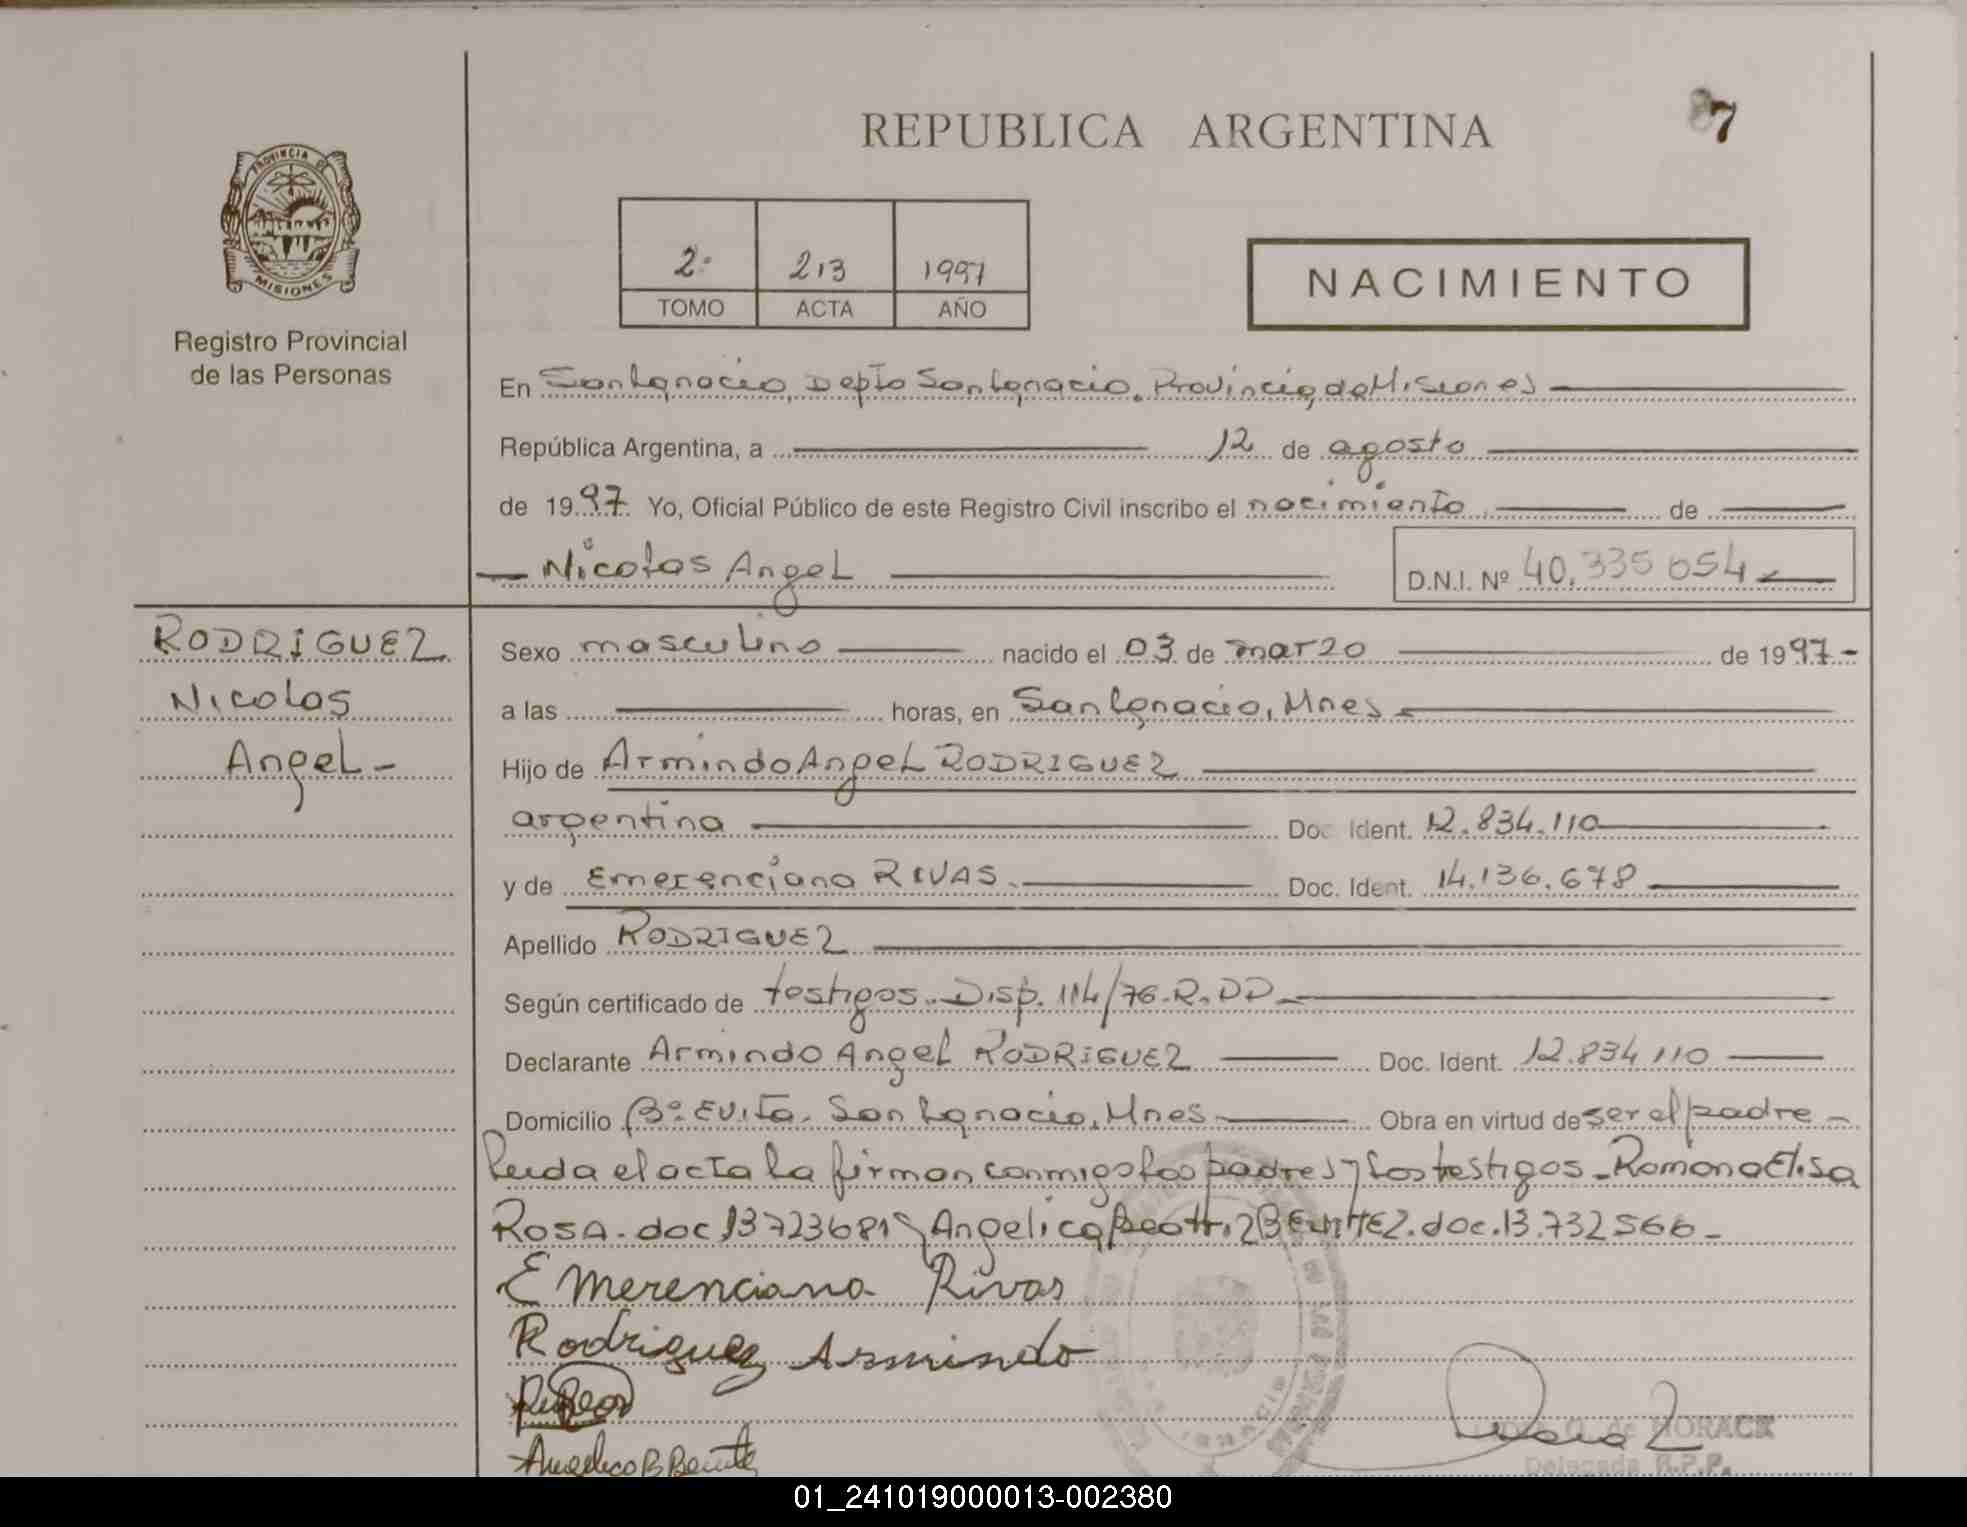 REPUBLICA ARGENTINA
87
PROVINCIA DE
MISIONES
Registro Provincial
de las Personas
2º 213 1997
TOMO ACTA AÑO
NACIMIENTO
En San Ignacio, Depto San Ignacio. Provincia de Misiones
República Argentina, a 12 de agosto
de 1997 Yo, Oficial Público de este Registro Civil inscribo el nacimiento de
Nicolas Angel D.N.I. Nº 40.335 654
RODRIGUEZ
Nicolas
Angel-
Sexo masculino nacido el 03 de marzo de 1997-
a las horas, en San Ignacio, Mnes
Hijo de Armindo Angel RODRIGUEZ
argentina Doc. Ident. 12.834.110
y de Emerenciana RIVAS. Doc. Ident. 14.136.678
Apellido RODRIGUEZ
Según certificado de testigos.. Disp. 114/76-R. DD
Declarante Armindo Angel RODRIGUEZ Doc. Ident. 12.834.110
Domicilio Bº Evita. San Ignacio, Mnes Obra en virtud de ser el padre -
Leida el acta la firman conmigo los padres y los testigos - Romona Elisa
ROSA. doc 13723681 y Angelica Beatriz BENITEZ. doc. 13.732566-
Emerenciana Rivas
Rodriguez Armindo
Angelica B Benitez
de HORACK
Delegada R.P.P.
01_241019000013-002380